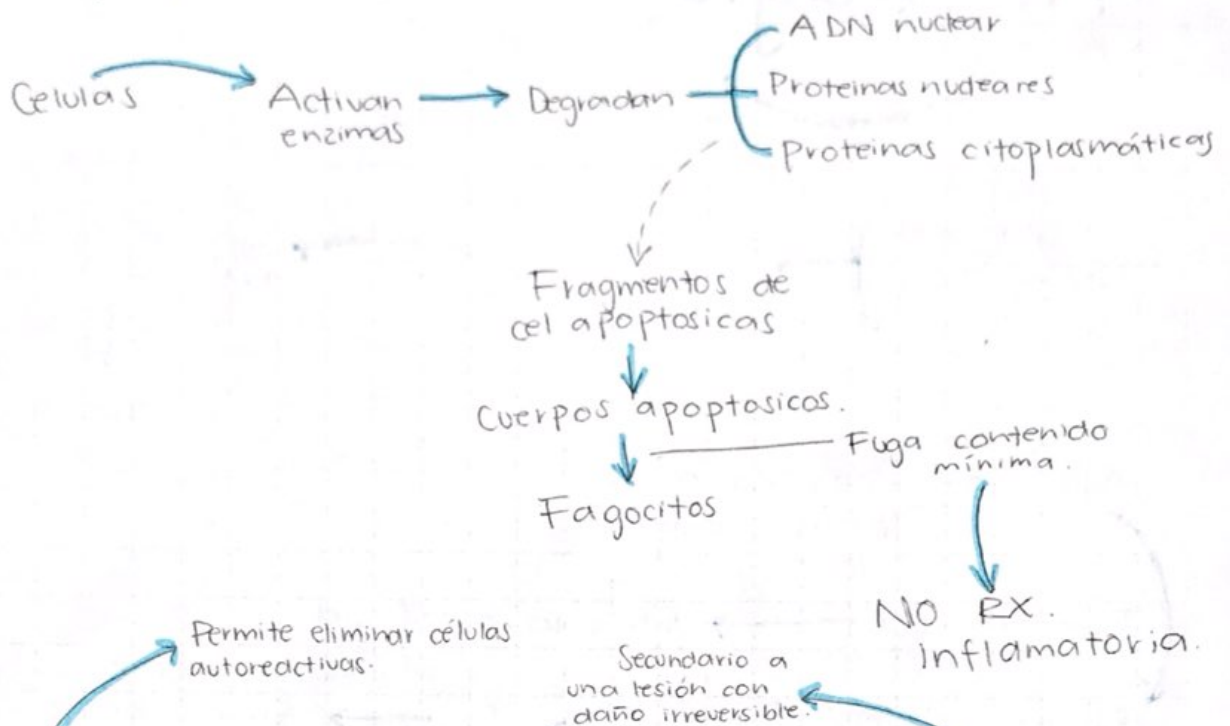 Celulas
Activan
enzimas
Degradan
ADN nuclear
Proteinas nucleares
Proteinas citoplasmáticas
Fragmentos de
cel apoptosicas
Cuerpos apoptosicos.
Fuga contenido
mínima.
Fagocitos
NO RX.
inflamatoria.
Permite eliminar células
autoreactivas.
Secundario a
una lesión con
daño irreversible.